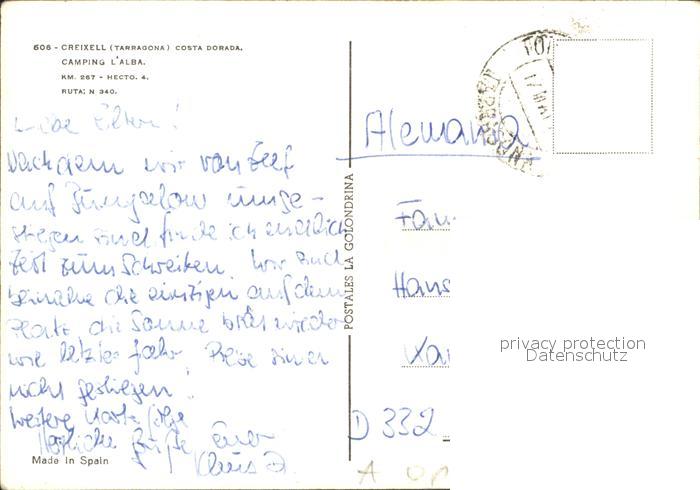 606 - CREIXELL (TARRAGONA) COSTA DORADA.
CAMPING L'ALBA.
KM. 267 - HECTO. 4.
RUTA: N 340.
Liebe Eltern!
Nachdem wir von Zelt
auf Bungalow umge-
stiegen sind finde ich endlich
Zeit zum Schreiben. Wir sind
beinahe die einzigen auf dem
Platz die Sonne wieder
wie letztes Jahr. Preise sind
nicht gestiegen.
Weitere Karte folgt
Herzliche Grüße Euer
Klaus
Made in Spain
POSTALES LA GOLONDRINA
Alemania
Fam.
Hans
D 332
privacy protection
Datenschutz